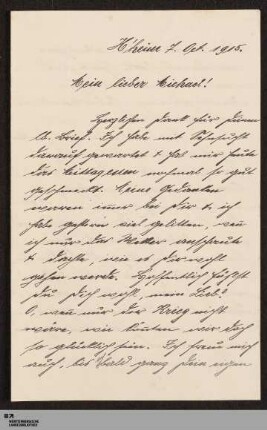 H'heim 7. Oct. 1915.
Mein lieber Michael!
Herzlichen Dank für Deinen
lb. Brief. Ich habe mit Sehnsucht
darauf gewartet & hat mir heute
das Mittagessen nochmal so gut
geschmeckt. Meine Gedanken
waren immer bei Dir & ich
habe gestern viel gelitten, wenn
ich nur das Wetter anschaute
& dachte, wie es Dir wohl
gehen werde. Hoffentlich fühlst
Du Dich wohl, mein Lieb?
O, wenn nur der Krieg nicht
wäre, wie könnten wir doch
so glücklich sein. Ich freu mich
auch, bis bald ganz Dein eigen
WLB
WÜRTTEMBERGISCHE
LANDESBIBLIOTHEK